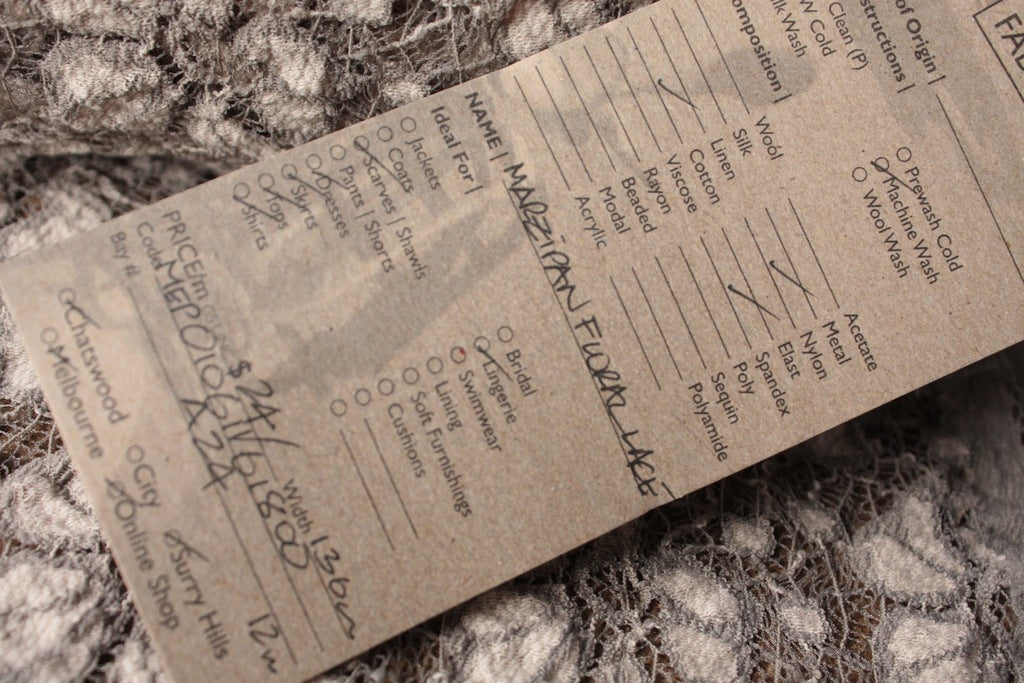 FAB
of Origin |
structions |
Clean (P)
W Cold
lk Wash
Prewash Cold
Machine Wash
Wool Wash
omposition |
Wool
Silk
Linen
Cotton
Viscose
Rayon
Beaded
Modal
Acrylic
Acetate
Metal
Nylon
Elast
Spandex
Poly
Sequin
Polyamide
NAME | MARZIPAN FLORAL LACE
Ideal For |
Jackets
Coats
Scarves | Shawls
Pants | Shorts
Dresses
Skirts
Tops
Shirts
Bridal
Lingerie
Swimwear
Lining
Soft Furnishings
Cushions
PRICE/m $24 Width 136cm
Code
Buy #. A224 12m
Chatswood City Surry Hills
Melbourne Online Shop